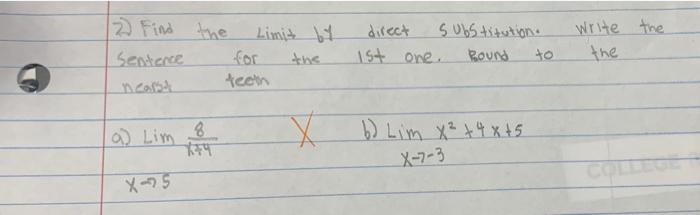 2) Find the Limit by direct substitution. Write the
sentence for the 1st one. Round to the
nearst teeth
a) Lim 8/x+4 X b) Lim x² + 4x + 5
x→5 x→-3
COLLEGE